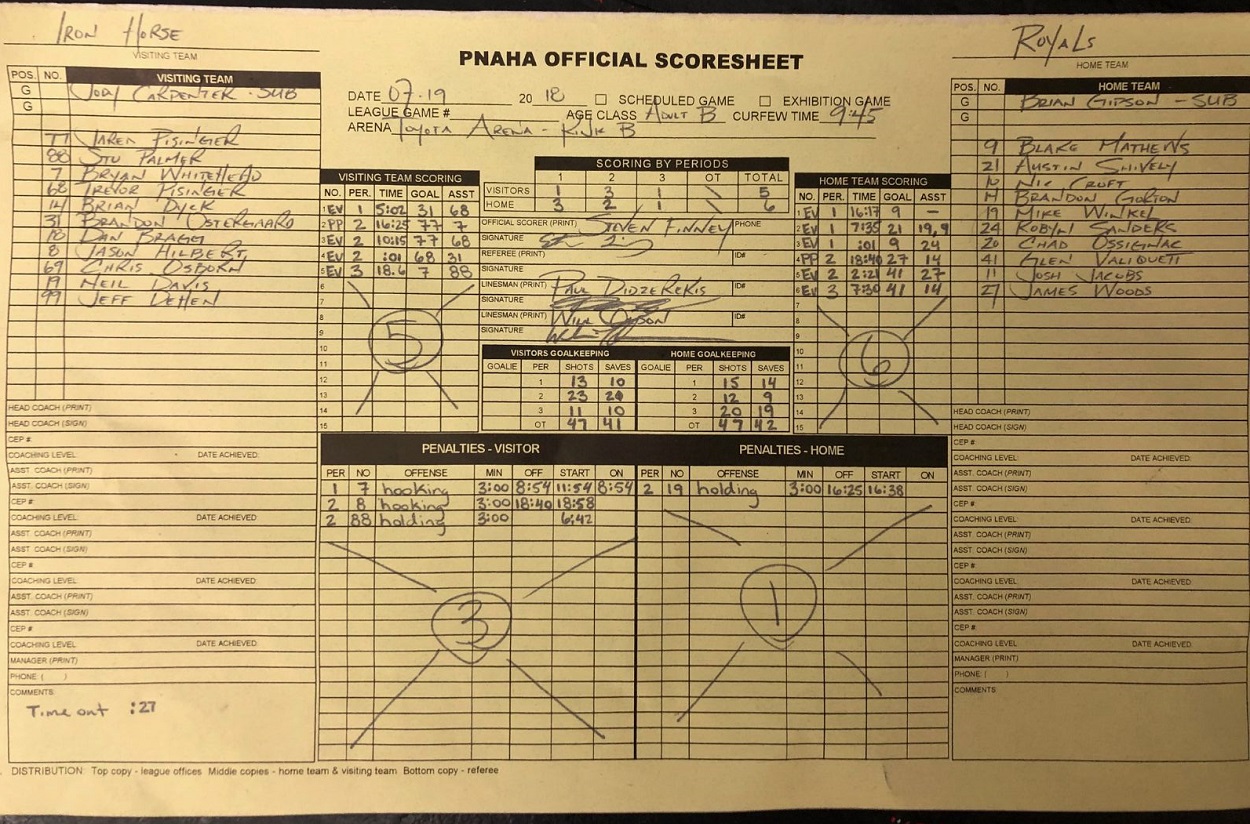 IRON HORSE
VISITING TEAM
ROYALS
HOME TEAM
PNAHA OFFICIAL SCORESHEET
DATE 07-19 20 18 ☐ SCHEDULED GAME ☐ EXHIBITION GAME
LEAGUE GAME # AGE CLASS ADULT B CURFEW TIME 9:45
ARENA TOYOTA ARENA - RINK B
POS. NO. VISITING TEAM
G JODY CARPENTER - SUB
G
77 JAREN PISINGER
88 STU PALMER
7 BRYAN WHITEHEAD
68 TREVOR PISINGER
14 BRIAN DYCK
31 BRANDON OSTERGAARD
18 DAN BRAGG
8 JASON HILBERT
69 CHRIS OSBORN
19 NEIL DAVIS
99 JEFF DEHEN
HEAD COACH (PRINT)
HEAD COACH (SIGN)
CEP #
COACHING LEVEL DATE ACHIEVED:
ASST. COACH (PRINT)
ASST. COACH (SIGN)
CEP #
COACHING LEVEL DATE ACHIEVED
ASST. COACH (PRINT)
ASST. COACH (SIGN)
CEP #
COACHING LEVEL DATE ACHIEVED:
ASST. COACH (PRINT)
ASST. COACH (SIGN)
CEP #
COACHING LEVEL DATE ACHIEVED
MANAGER (PRINT)
PHONE: ( )
COMMENTS
Time out :27
VISITING TEAM SCORING
NO. PER. TIME GOAL ASST
1 EV 1 5:02 31 68
2 PP 2 16:25 77 7
3 EV 2 10:15 77 68
4 EV 2 :01 68 31
5 EV 3 18.6 7 88
6
7
8
9
10
11
12
13
14
15
5
SCORING BY PERIODS
1 2 3 OT TOTAL
VISITORS 1 3 1 \ 5
HOME 3 2 1 \ 6
OFFICIAL SCORER (PRINT) STEVEN FINNEY PHONE
SIGNATURE
REFEREE (PRINT) ID#
SIGNATURE
LINESMAN (PRINT) PAUL DIDZEREKIS ID#
SIGNATURE
LINESMAN (PRINT) WILL OLSON ID#
SIGNATURE
VISITORS GOALKEEPING
GOALIE PER SHOTS SAVES
1 13 10
2 23 20
3 11 10
OT 47 41
HOME GOALKEEPING
GOALIE PER SHOTS SAVES
1 15 14
2 12 9
3 20 19
OT 47 42
HOME TEAM SCORING
NO. PER. TIME GOAL ASST
1 EV 1 16:17 9 —
2 EV 1 7:35 21 19,9
3 EV 1 :01 9 24
4 PP 2 18:40 27 14
5 EV 2 2:21 41 27
6 EV 3 7:30 41 14
7
8
9
10
11
12
13
14
15
6
POS. NO. HOME TEAM
G BRIAN GIPSON - SUB
G
9 BLAKE MATHEWS
21 AUSTIN SHIVELY
10 NIC CROFT
14 BRANDON GORTON
19 MIKE WINKEL
24 ROBYN SANDERS
20 CHAD OSSIGNAC
41 GLEN VALIQUETT
11 JOSH JACOBS
27 JAMES WOODS
HEAD COACH (PRINT)
HEAD COACH (SIGN)
CEP #
COACHING LEVEL: DATE ACHIEVED:
ASST. COACH (PRINT)
ASST. COACH (SIGN)
CEP #
COACHING LEVEL: DATE ACHIEVED:
ASST. COACH (PRINT)
ASST. COACH (SIGN)
CEP #
COACHING LEVEL: DATE ACHIEVED:
ASST. COACH (PRINT)
ASST. COACH (SIGN)
CEP #
COACHING LEVEL: DATE ACHIEVED:
MANAGER (PRINT)
PHONE: ( )
COMMENTS
PENALTIES - VISITOR
PER NO OFFENSE MIN OFF START ON
1 7 hooking 3:00 8:54 11:54 8:54
2 8 hooking 3:00 18:40 18:58
2 88 holding 3:00 6:42
3
PENALTIES - HOME
PER NO OFFENSE MIN OFF START ON
2 19 holding 3:00 16:25 16:38
1
DISTRIBUTION: Top copy - league offices Middle copies - home team & visiting team Bottom copy - referee